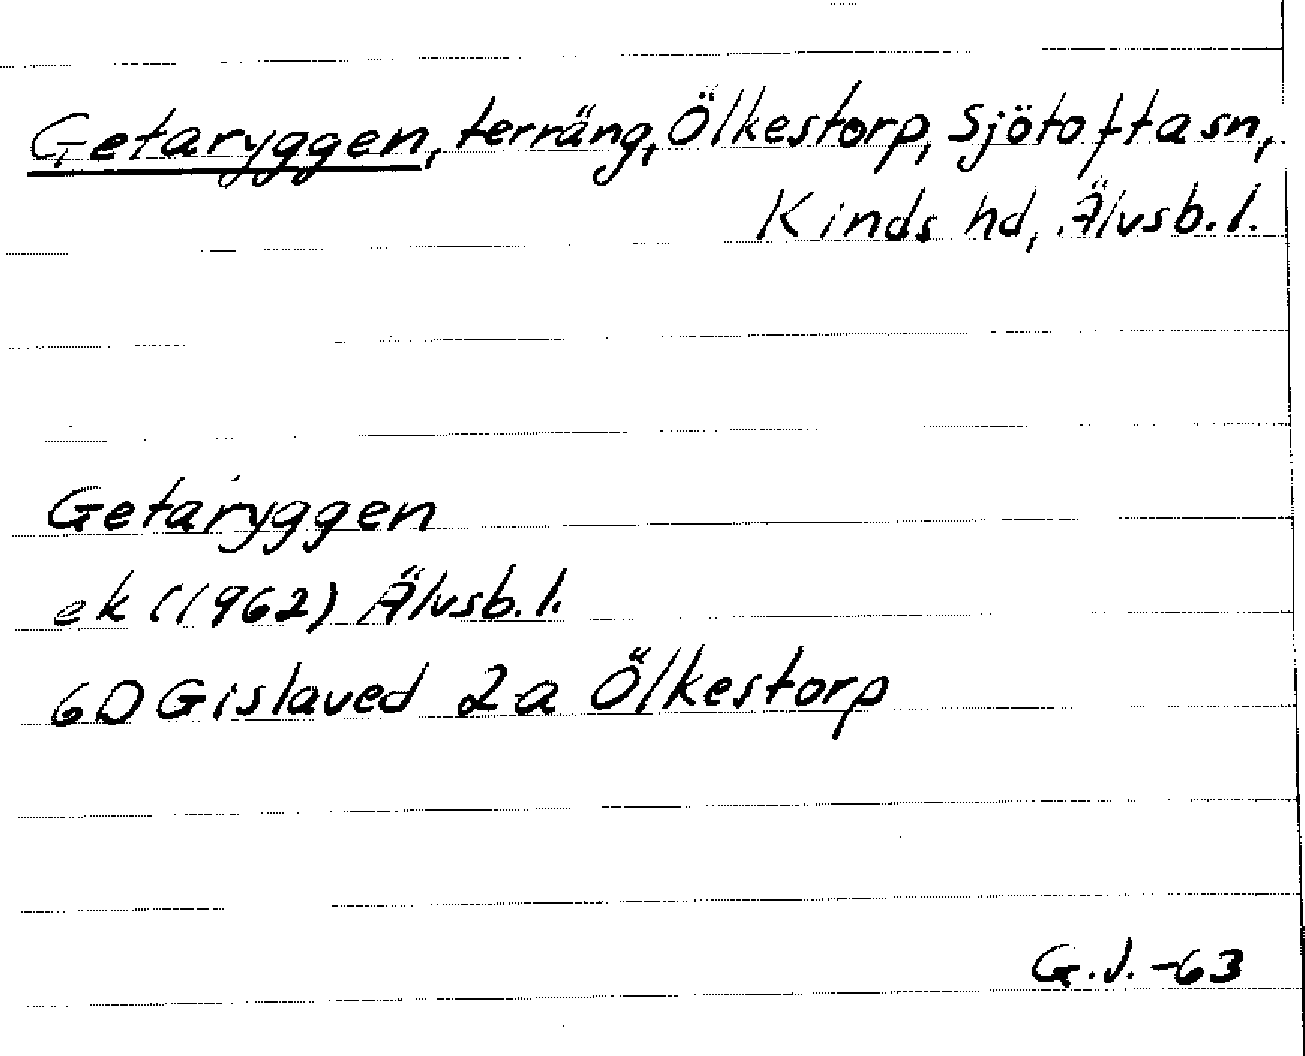 Getaryggen, terräng, Ölkestorp, Sjötofta sn,
Kinds hd, Älvsb. l.
Getaryggen
ek (1962) Älvsb. l.
6D Gislaved 2a Ölkestorp
G.J. -63